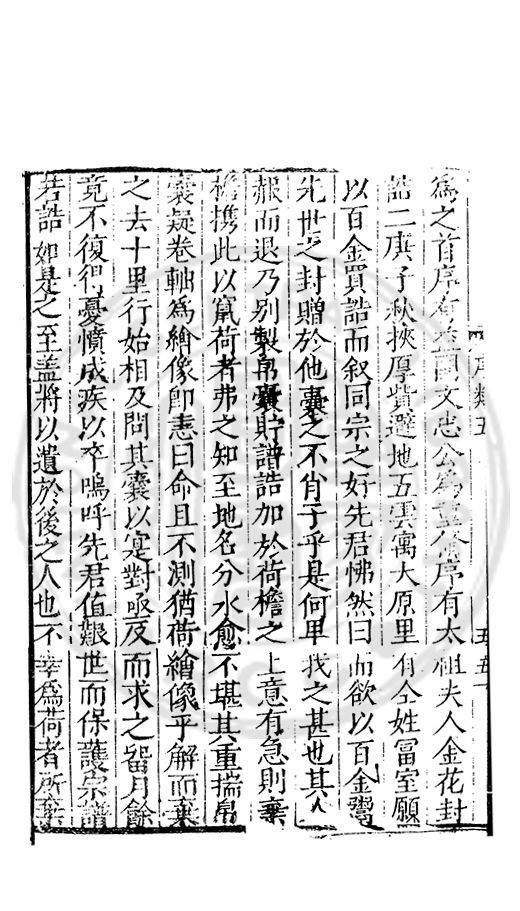 為之首序有益國文忠公為重公序有太祖夫人金花封
誥二庚子秋挾厚貲避地五雲寓大原里有仝姓富室願
以百金買誥而叙同宗之好先君怫然曰而欲以百金鬻
先世之封贈於他囊之不肖子乎是何卑我之甚也其人
赧而退乃别製帛囊貯譜誥加於荷檐之上意有急則棄
檐携此以竄荷者弗之知至地名分水愈不堪其重揣帛
囊疑卷軸為繪像即恚曰命且不測猶荷繪像乎解而棄
之去十里行始相及問其囊以寔對亟反而求之畱月餘
竟不復得憂憤成疾以卒嗚呼先君值艱世而保護宗譜
若誥如是之至盖將以遺於後之人也不幸為荷者所棄
序類五
五五